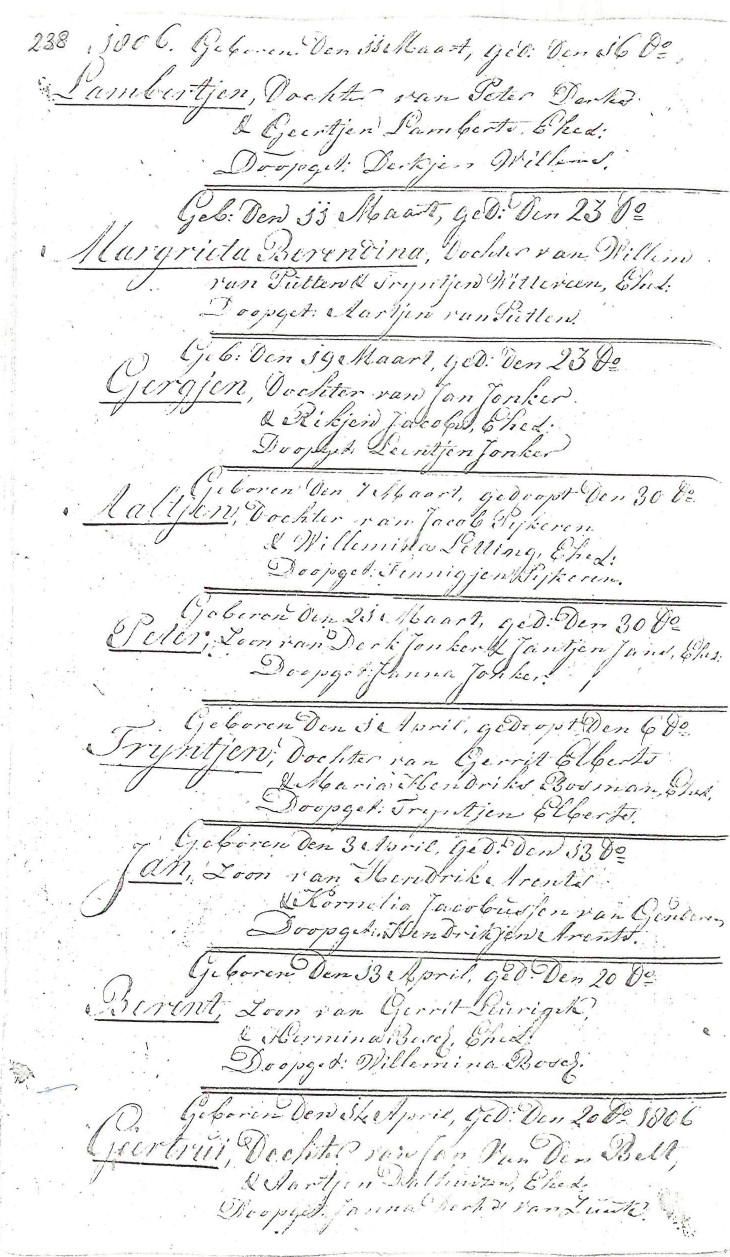 238 1806. Geboren Den 11 Maart, ged: Den 16 Do
Lambertjen, Dochter van Peter Derks
& Geertjen Lamberts, Ehel:
Doopget: Derkjen Willems.
Geb: Den 11 Maart, ged: Den 23 Do
Margrieta Berendina, Dochter van Willem
van Putten & Tryntjen Witteveen, Ehel:
Doopget: Aartjen van Putten.
Geb: Den 19 Maart, ged: Den 23 Do
Gergjen, Dochter van Jan Jonker
& Rikjen Jacobs, Ehel:
Doopget: Leentjen Jonker
Geboren Den 7 Maart, gedoopt Den 30 Do
Aaltjen, Dochter van Jacob Pijkeren
& Willemina Letting, Ehel:
Doopget: Fennigjen Pijkeren.
Geboren Den 21 Maart, ged: Den 30 Do
Peter, Zoon van Derk Jonker & Jantjen Jans, Ehel:
Doopget: Janna Jonker.
Geboren Den 1 April, gedoopt Den 6 Do
Tryntjen, Dochter van Gerrit Elberts
& Maria Hendriks Bosman, Ehel.
Doopget: Tryntjen Elberts.
Geboren Den 3 April, ged: Den 13 Do
Jan, Zoon van Hendrik Arents
& Kornelia Jacobussen van Genderen
Doopget: Hendrikjen Arents.
Geboren Den 13 April, ged Den 20 Do
Berent, Zoon van Gerrit
& Hermina Bosch, Ehel:
Doopget: Willemina Bosch.
Geboren Den 14 April, ged: Den 20 Do 1806
Geertrui, Dochter van Jan Van Den Belt,
& Aartjen Dalhuizen, Ehel:
Doopget: Janna Derks van Zuuk.